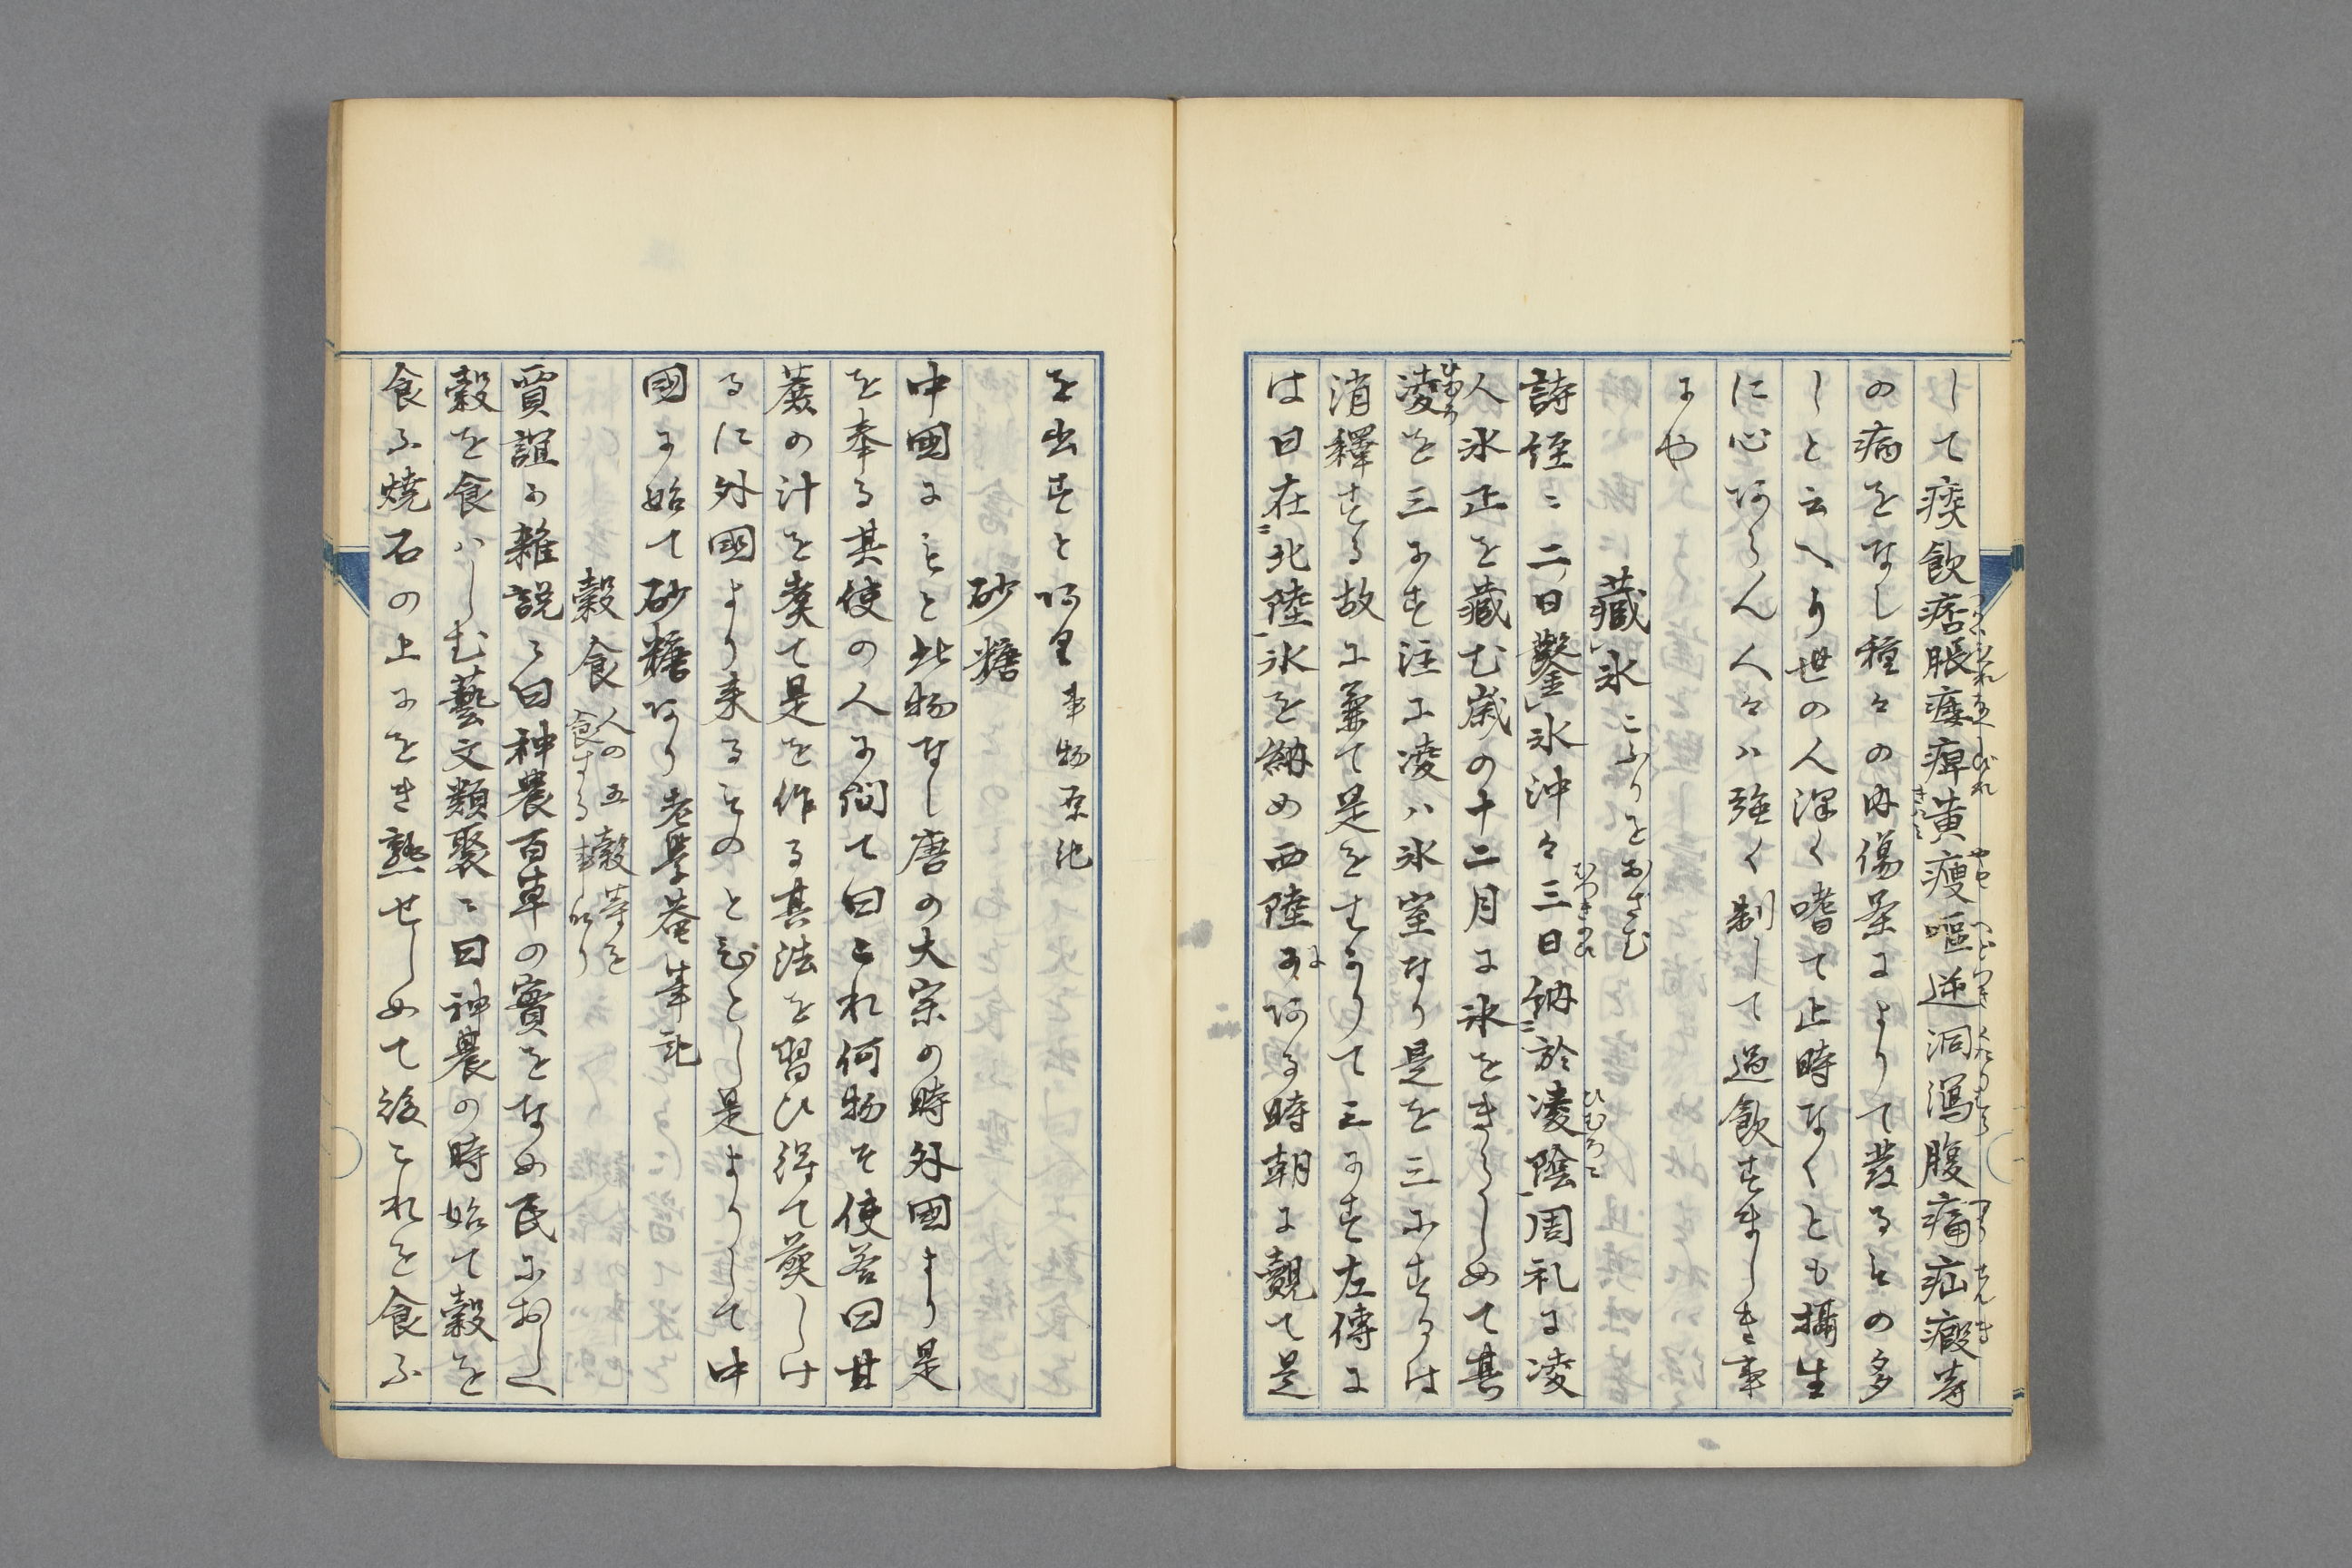 して痰飲痞脹痿痺黄瘦嘔逆洞瀉腹痛疝瘕等
の病をなし種々の内傷暴によりて發るもの多
しと云へり世の人深く嗜て止時なくとも攝生
に心あらん人々ハ強く制して過飲すましき事
にや
藏氷 こふりをおさむ
詩経ニ二日鑿氷沖々三日納於凌陰周礼に凌
人氷正を藏む歳の十二月に氷をきらしめて其
凌を三にす注に凌ハ氷室なり是を三にするは
消釋する故に兼て是をはかりて三にす左傳に
は日在北陸氷を納め西陸にある時朝に覿て是
を出すとあり 事物原記
砂糖
中國にもと此物なし唐の大宗の時外國より是
を奉る其使の人に問て曰これ何物そ使答曰甘
蔗の汁を煑て是を作る其法を習ひ得て煎しけ
るに外國より来るものとひとし是よりして中
國に始て砂糖あり 老學菴筆記
穀食 人の五穀等を食する事始り
賈誼か雑説ニ曰神農百草の實をなめ民におしへ
穀を食ハしむ藝文類聚ニ曰神農の時始て穀を
食ふ燒石の上にをき熟せしめて後これを食ふ